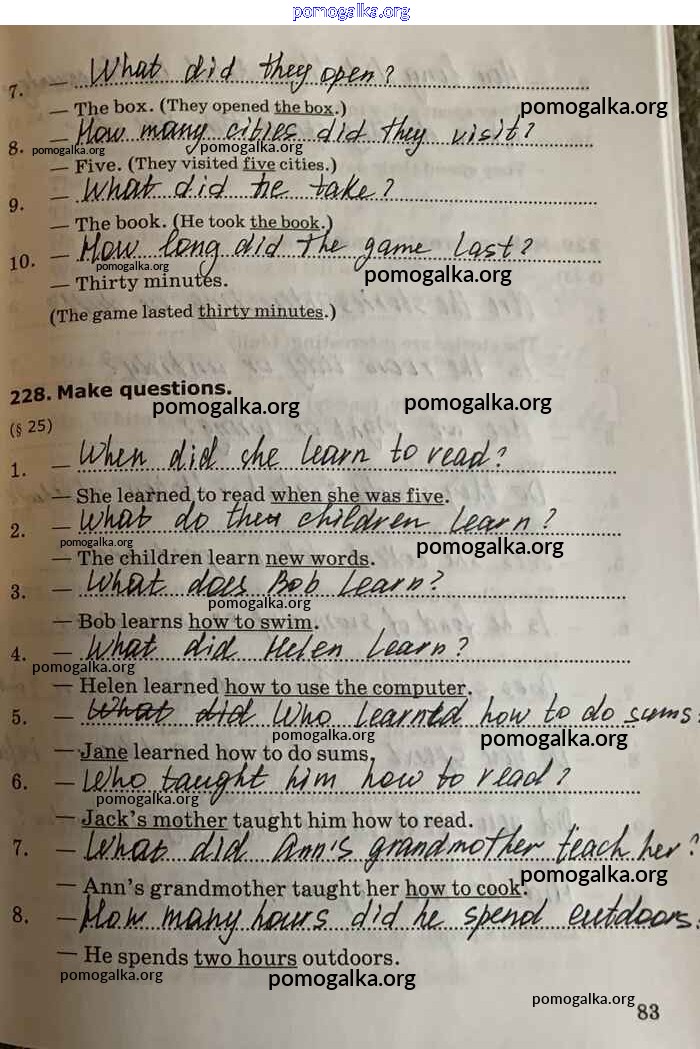 pomogalka.org
7. — What did they open?
— The box. (They opened the box.)
pomogalka.org
8. — How many cities did they visit?
pomogalka.org pomogalka.org
— Five. (They visited five cities.)
9. — What did he take?
— The book. (He took the book.)
10. — How long did the game last?
pomogalka.org pomogalka.org
— Thirty minutes.
(The game lasted thirty minutes.)
228. Make questions.
pomogalka.org pomogalka.org
(§ 25)
1. — When did she learn to read?
— She learned to read when she was five.
2. — What do the children learn?
pomogalka.org pomogalka.org
— The children learn new words.
3. — What does Bob learn?
pomogalka.org
— Bob learns how to swim.
4. — What did Helen learn?
pomogalka.org
— Helen learned how to use the computer.
5. — What did Who learned how to do sums
pomogalka.org pomogalka.org
— Jane learned how to do sums.
6. — Who taught him how to read?
pomogalka.org
— Jack's mother taught him how to read.
7. — What did Ann's grandmother teach her?
pomogalka.org
— Ann's grandmother taught her how to cook.
8. — How many hours did he spend outdoors
— He spends two hours outdoors.
pomogalka.org pomogalka.org
pomogalka.org
83